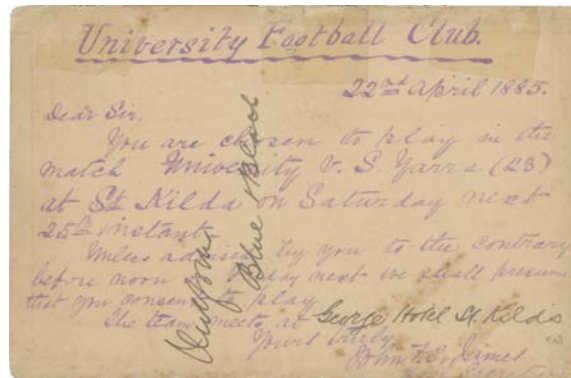 University Football Club.
22nd April 1885.
Dear Sir,
You are chosen to play in the
match University v. S. Yarra (23)
at St Kilda on Saturday next
25th instant
Unless advised by you to the contrary
before noon next we shall presume
that you consent to play
The team meets at George Hotel St. Kilda
Yours
John
Uniform
Blue & Black